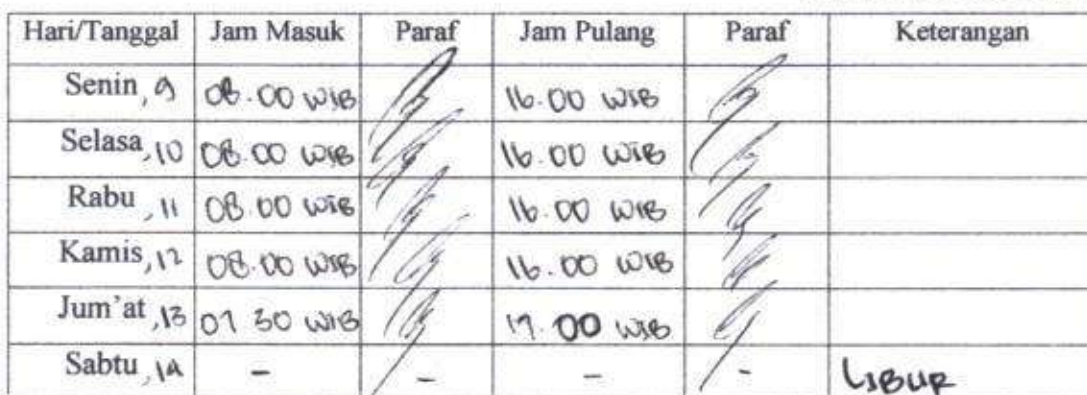 Hari/Tanggal Jam Masuk Paraf Jam Pulang Paraf Keterangan
Senin, 9 08.00 WIB 16.00 WIB
Selasa, 10 08.00 WIB 16.00 WIB
Rabu, 11 08.00 WIB 16.00 WIB
Kamis, 12 08.00 WIB 16.00 WIB
Jum'at, 13 07 30 WIB 17.00 WIB
Sabtu, 14 - - - - LIBUR